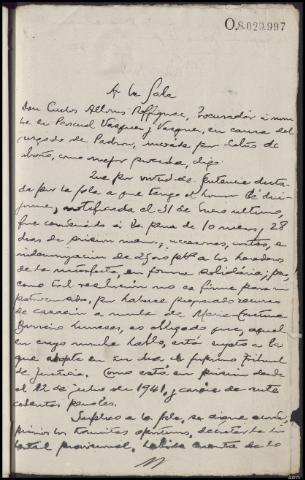 O.8.029.997
A la Sala
Don Carlos Alfonso Procurador a nom-
bre de Pascual Vazquez y Vazquez, en causa del
Juzgado de Padron, incoada por delito de
aborto, como mejor proceda, digo:
Que por virtud de sentencia dicta-
da por la Sala a que tengo el honor de diri-
girme, notificada el 31 de Enero ultimo,
fue condenado a la pena de 10 meses, 28
dias de prision menor, accesorias, costas, e
indemnizacion de ptas a los herederos
de la interfecta, en forma solidaria; pero,
como tal resolucion no es firme para mi
patrocinado, por haberse preparado recurso
de casacion a nombre de Maria
es obligado que, aquel
en cuyo nombre hablo, está sujeto a lo
que adopte en su dia el Supremo Tribunal
de Justicia. Como está en prision desde
el 12 de julio de 1941, y carece de ante-
cedentes penales.
Suplico a la Sala, se digne, previos
los tramites oportunos, decretar la li-
bertad provisional, habida cuenta de lo